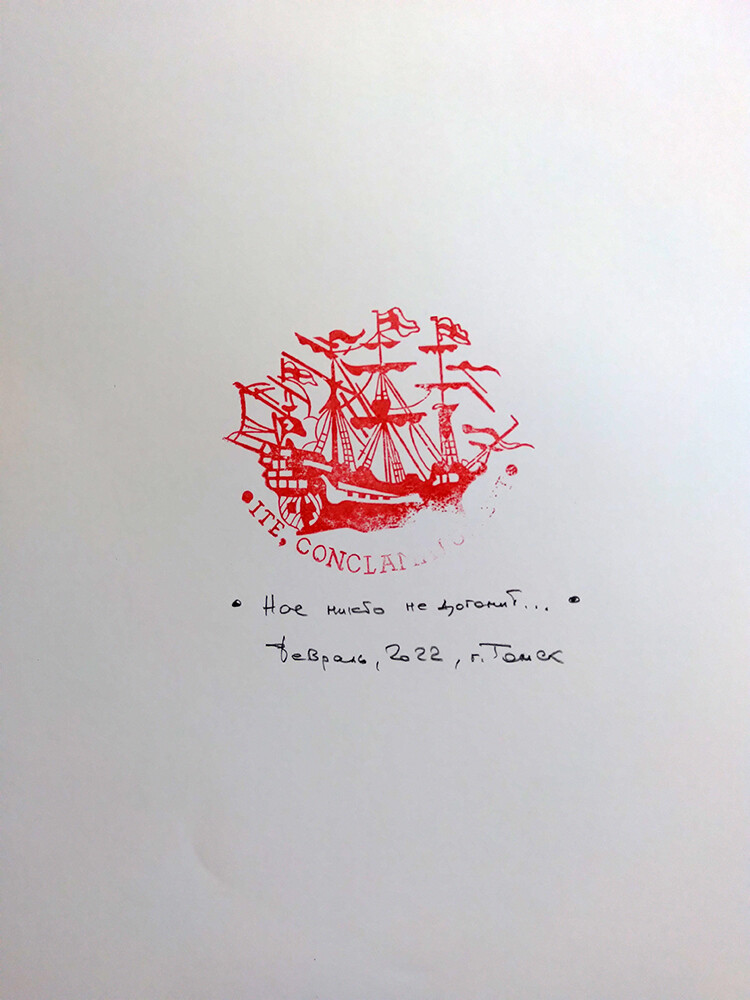 • ITE, CONCLAM
• Нас никто не догонит... •
Февраль, 2022, г. Томск